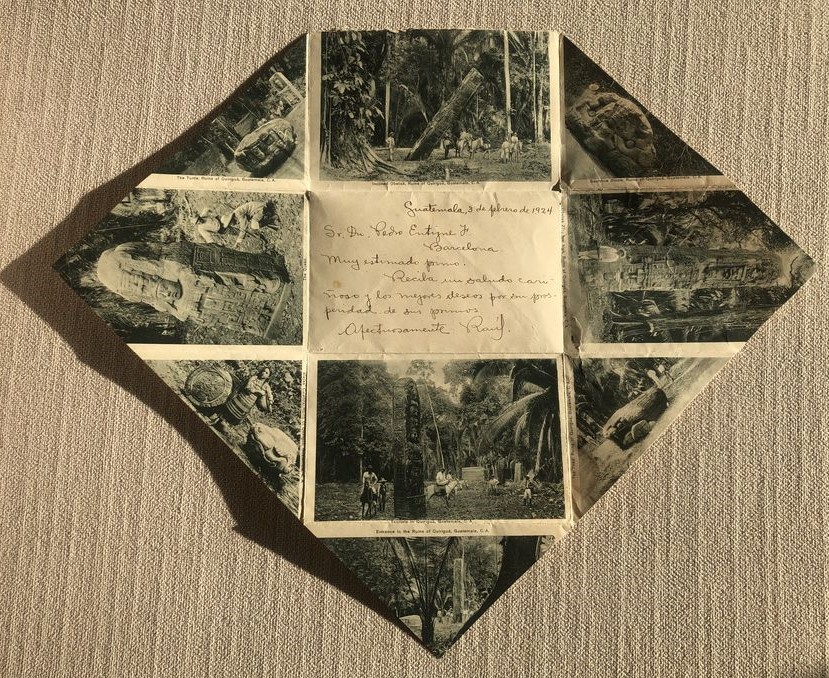 The Turtle, Ruins of Quirigua, Guatemala, C.A.
Inclined Obelisk, Ruins of Quirigua, Guatemala, C.A.
Guatemala, 3 de febrero de 1924
Sr. Dn. Pedro
Barcelona.
Muy estimado primo.
Reciba un saludo cari-
ñoso y los mejores deseos por su pros-
peridad de sus primos
Afectuosamente Raúl.
Quirigua, Guatemala, C.A.
Entrance to the Ruins of Quirigua, Guatemala, C.A.